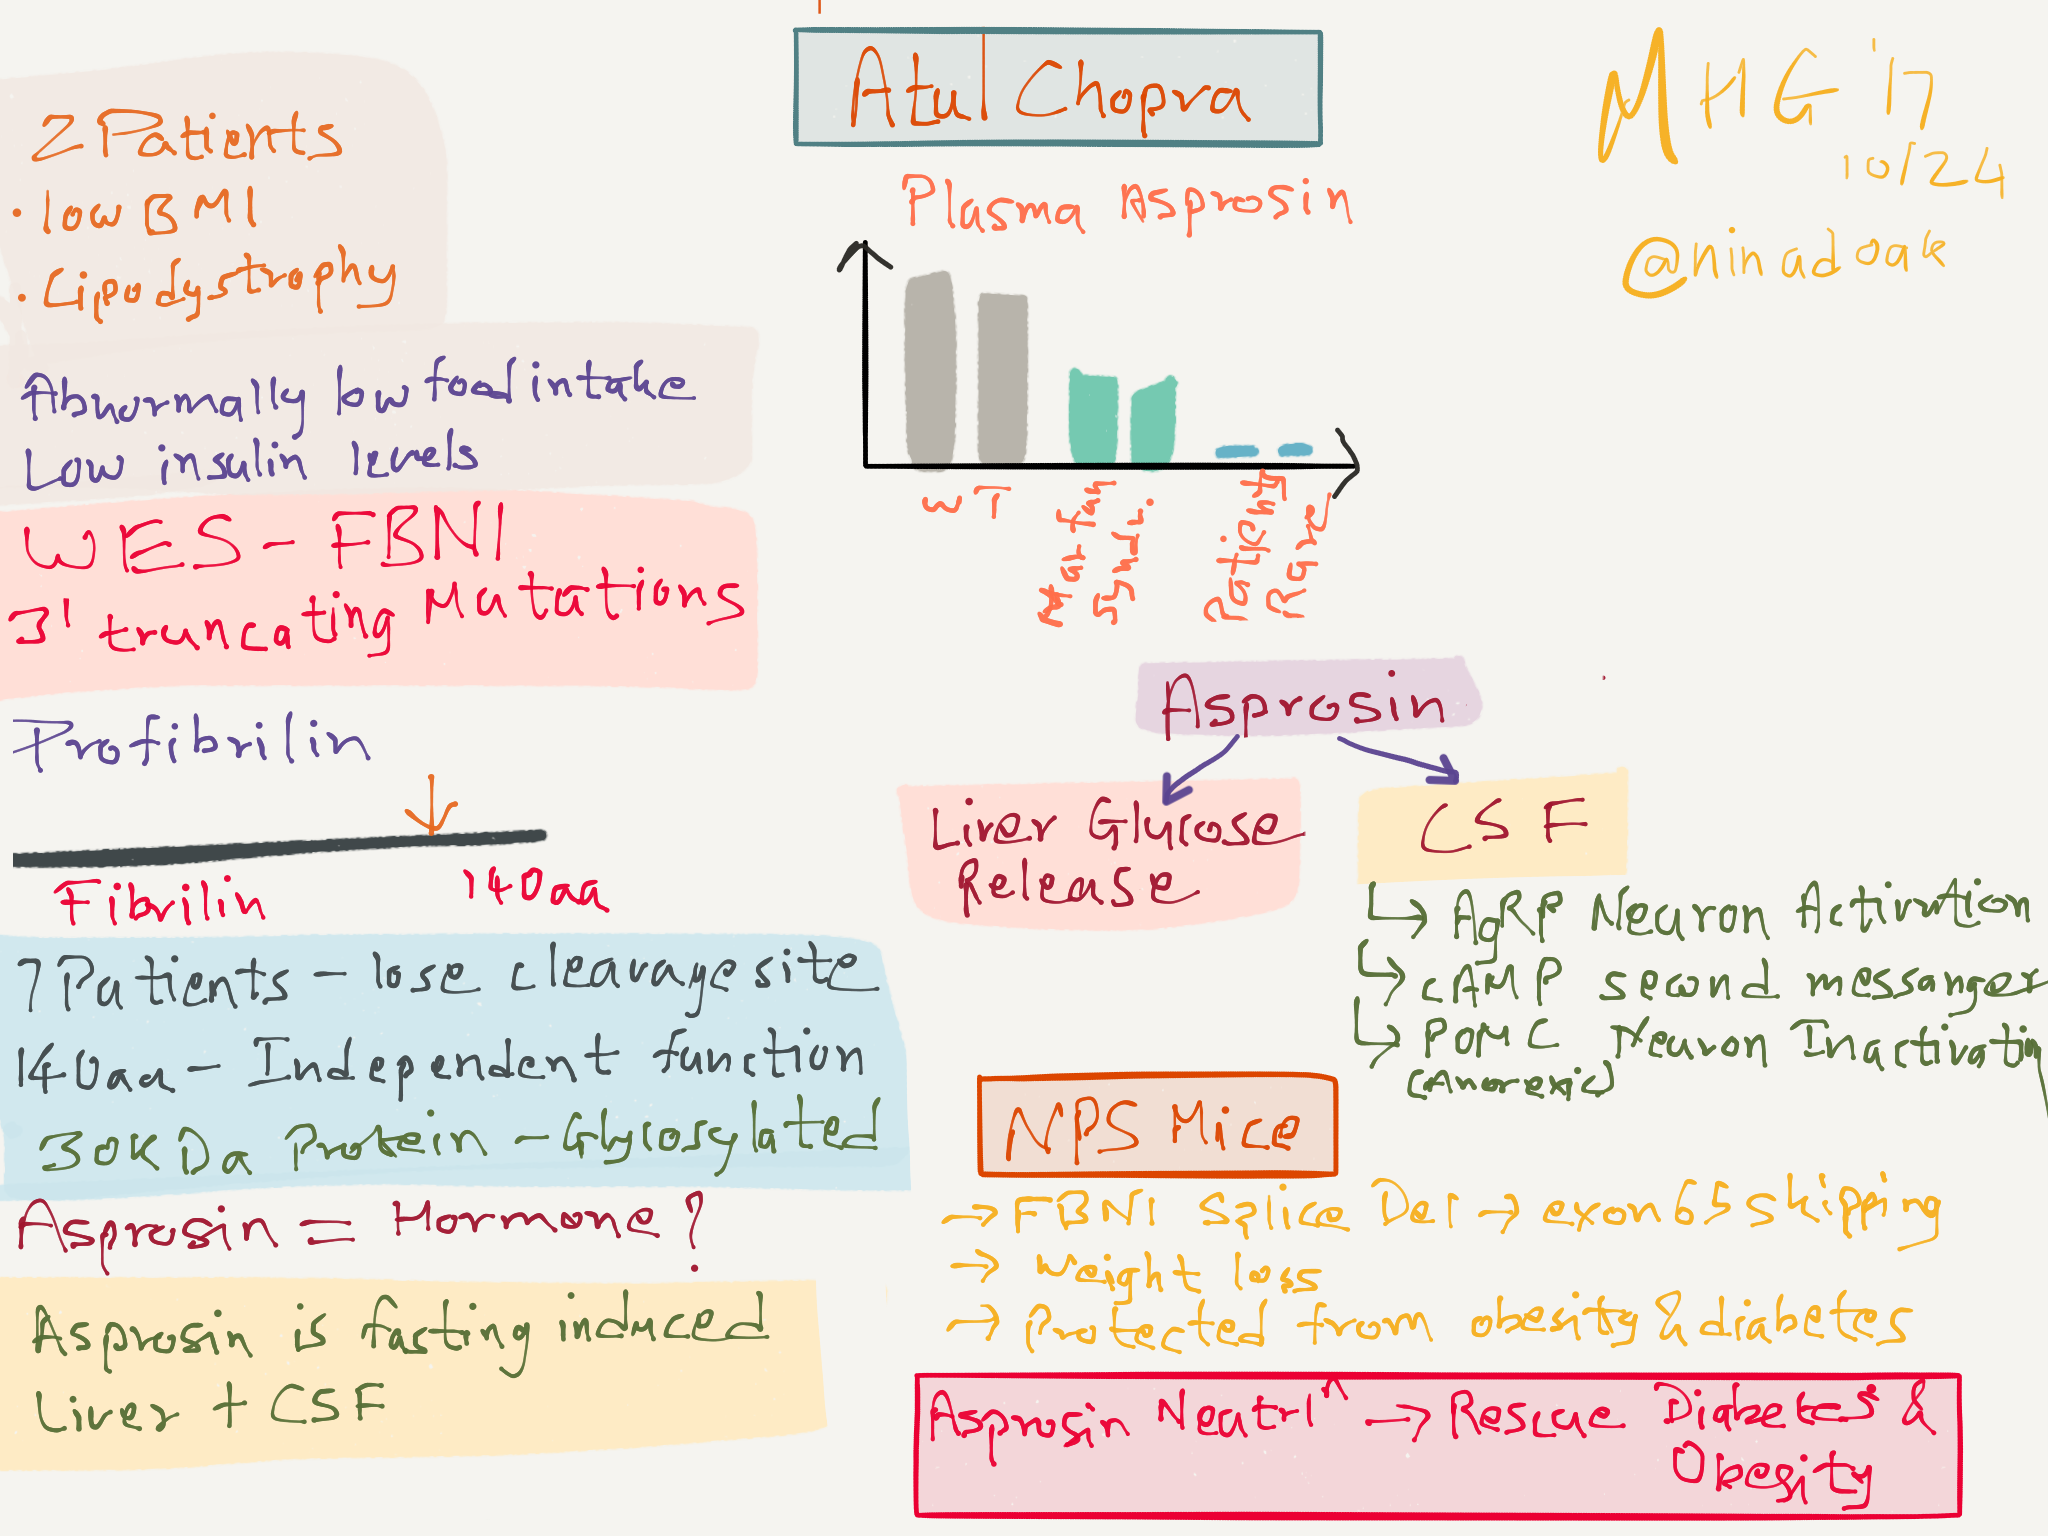 Atul Chopra
MHG '17
10/24
@ninadoak
2 Patients
• low BMI
• Lipodystrophy
Abnormally low food intake
Low insulin levels
WES - FBN1
3' truncating Mutations
Profibrilin
Fibrilin 140aa
7 Patients - lose cleavage site
140aa - Independent function
30KDa Protein - Glycosylated
Asprosin = Hormone?
Asprosin is fasting induced
Liver + CSF
Plasma Asprosin
WT
Marfan
Syndr.
Patients
Rare
Asprosin
Liver Glucose
Release
CSF
↳ AgRP Neuron Activation
↳ cAMP second messanger
↳ POMC Neuron Inactivatin
(Anorexic)
NPS Mice
→ FBN1 Splice Del → exon 65 skipping
→ Weight loss
→ Protected from obesity & diabetes
Asprosin Neutrlⁿ → Rescue Diabetes &
Obesity